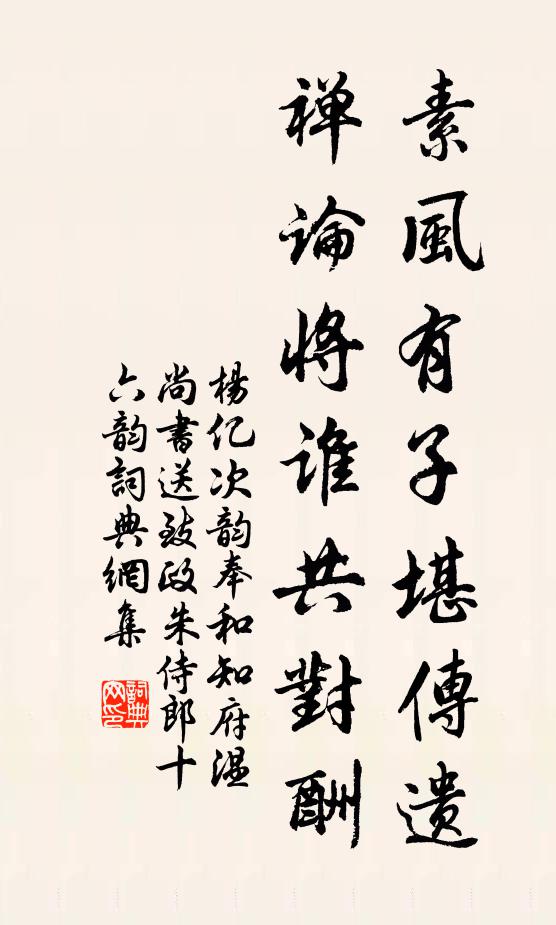 素風有子堪傳遺
禅論將誰共對酬
楊亿次韵奉和知府温
尚書送致政朱侍郎十
六韵詞典網集
詞典网印